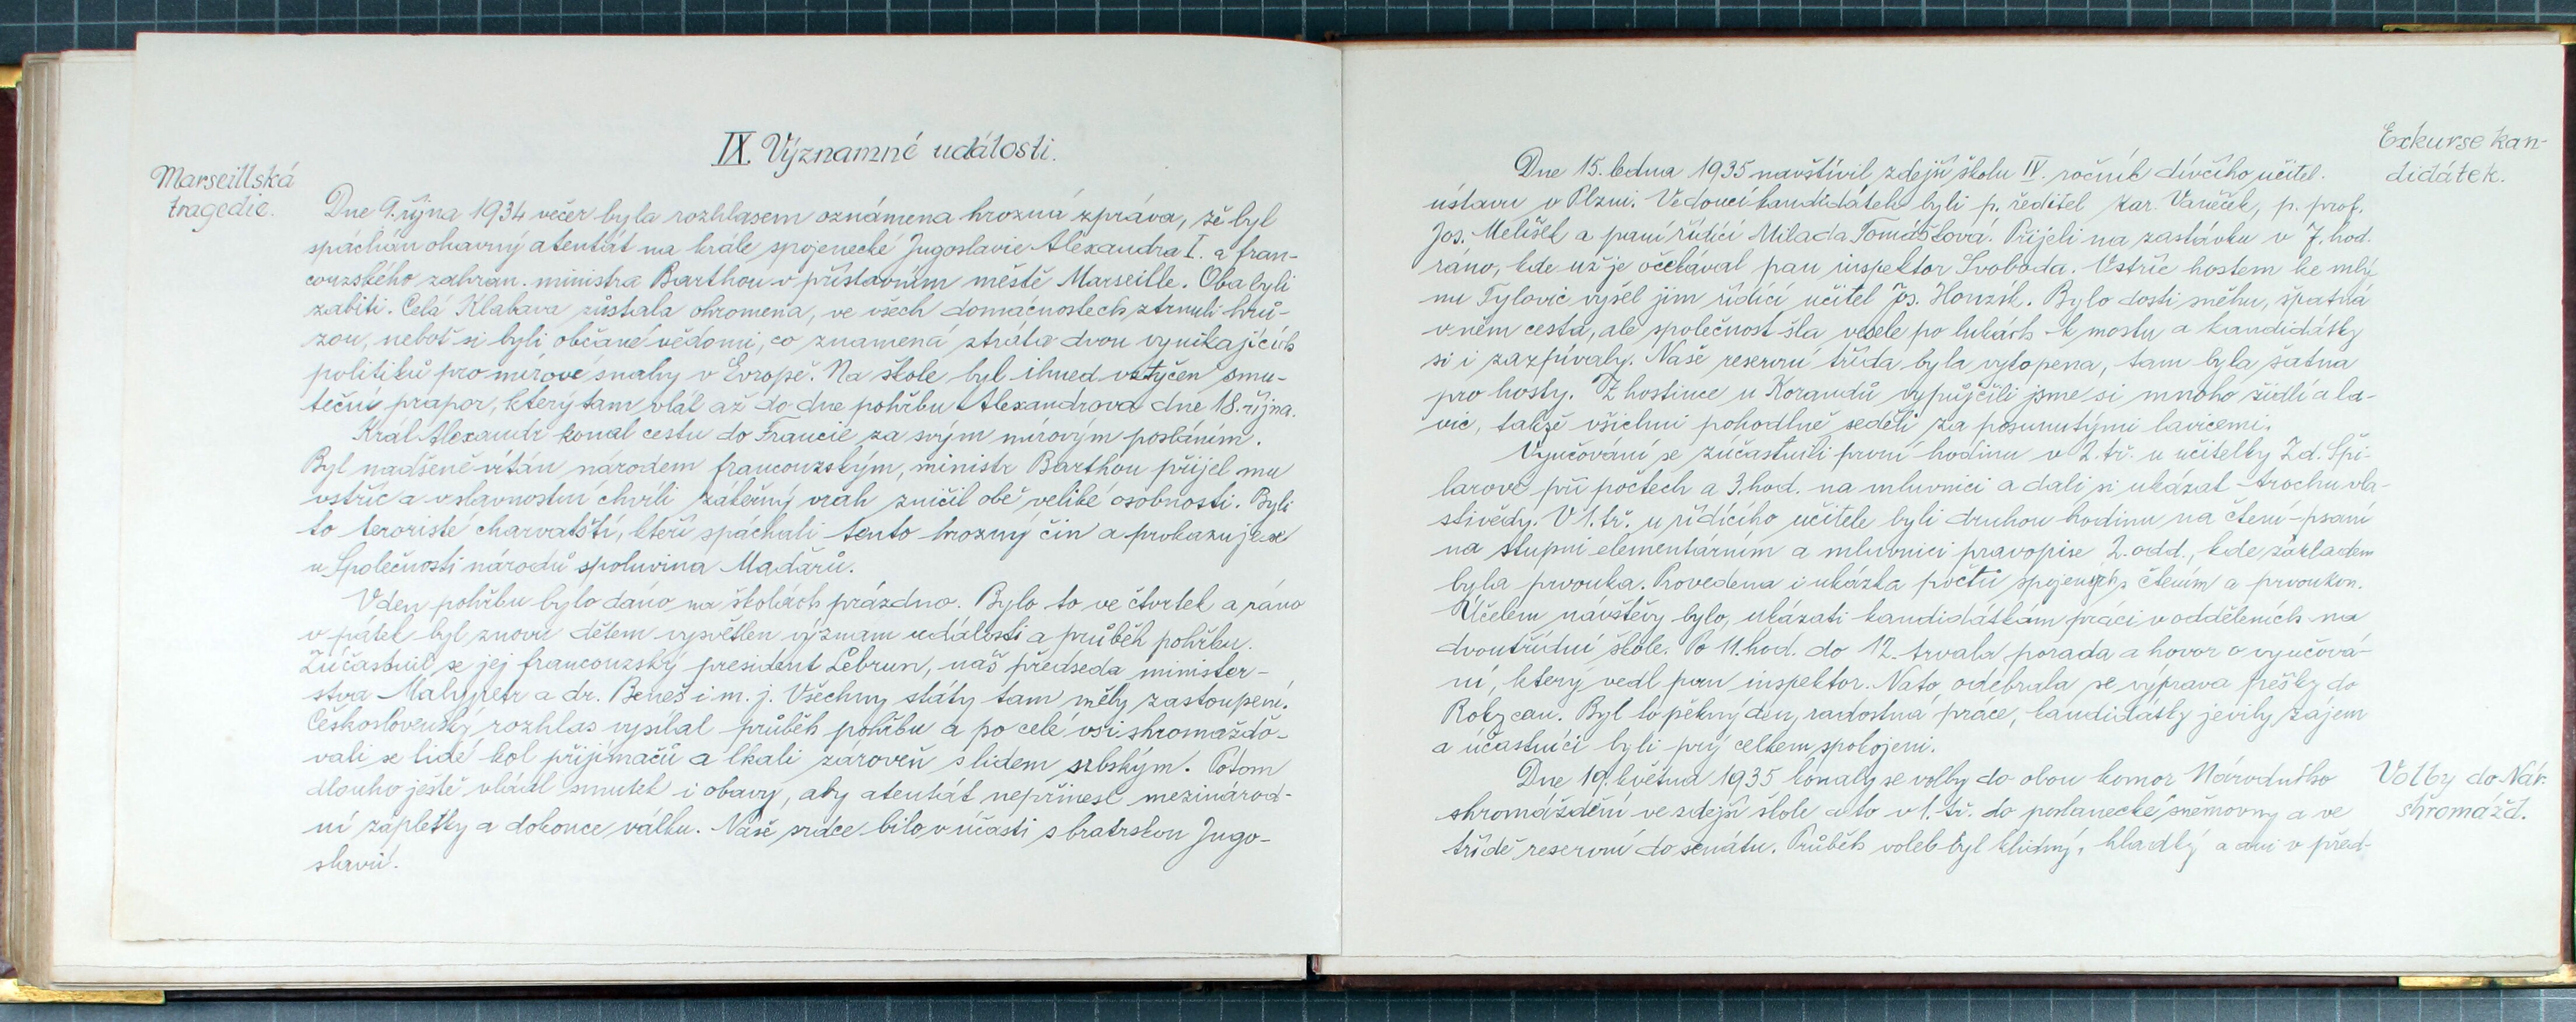 IX. Významné události.
Marseillská
tragedie.
Dne 9. října 1934 večer byla rozhlasem oznámena hrozná zpráva, že byl
spáchán ohavný atentát na krále spojenecké Jugoslavie Alexandra I. a fran-
couzského zahran. ministra Barthou v přístavním městě Marseille. Oba byli
zabiti. Celá Klabava zůstala ohromena, ve všech domácnostech ztrnuli hrů-
zou, neboť si byli občané vědomi, co znamená ztráta dvou vynikajících
politiků pro mírové snahy v Evropě. Na škole byl ihned vztyčen smu-
teční prapor, který tam vlál až do dne pohřbu Alexandrova dne 18. října.
Král Alexandr konal cestu do Francie za svým mírovým posláním.
Byl nadšeně vítán národem francouzským, ministr Barthou přijel mu
vstříc a v slavnostní chvíli zákeřný vrah zničil obě veliké osobnosti. Byli
to teroristé charvatští, kteří spáchali tento hrozný čin a prokazuje se
u Společnosti národů spoluvina Maďarů.
V den pohřbu bylo dáno na školách prázdno. Bylo to ve čtvrtek a ráno
v pátek byl znovu dětem vysvětlen význam události a průběh pohřbu.
Zúčastnil se jej francouzský president Lebrun, náš předseda minister-
stva Malypetr a dr. Beneš i m. j. Všechny státy tam měly zastoupení.
Československý rozhlas vysílal průběh pohřbu a po celé vsi shromažďo-
vali se lidé kol přijímačů a lkali zároveň s lidem srbským. Potom
dlouho ještě vládl smutek i obavy, aby atentát nepřinesl mezinárod-
ní zápletky a dokonce válku. Naše srdce bilo v účasti s bratrskou Jugo-
slavií.
Exkurse kan-
didátek.
Dne 15. ledna 1935 navštívil zdejší školu IV. ročník dívčího učitel.
ústavu v Plzni. Vedoucí kandidátek byli p. ředitel Kar. Vaněček, p. prof.
Jos. Melíšek a paní řídící Milada Tomášková. Přijeli na zastávku v 7. hod.
ráno, kde už je očekával pan inspektor Svoboda. Vstříc hostem ke mlý
nu Tylovic vyšel jim řídící učitel Jos. Honzík. Bylo dosti sněhu, špatná
v něm cesta, ale společnost šla vesele po lukách k mostu a kandidátky
si i zazpívaly. Naše reservní třída byla vytopena, tam byla šatna
pro hosty. Z hostince u Korandů vypůjčili jsme si mnoho židlí a la-
vic, takže všichni pohodlně seděli za posunutými lavicemi.
Vyučování se zúčastnili první hodinu v 2. tř. u učitelky Zd. Špi-
larové při počtech a 3. hod. na mluvnici a dali si ukázat trochu vla-
stivědy. V 1. tř. u řídícího učitele byli druhou hodinu na čtení-psaní
na stupni elementárním a mluvnici pravopise 2. odd., kde základem
byla prvouka. Provedena i ukázka počtů spojených s čtením a prvoukou.
Účelem návštěvy bylo, ukázati kandidátkám práci v odděleních na
dvoutřídní škole. Po 11. hod. do 12. trvala porada a hovor o vyučová-
ní, který vedl pan inspektor. Nato odebrala se výprava pěšky do
Rokycan. Byl to pěkný den, radostná práce, kandidátky jevily zájem
a účastníci byli prý celkem spokojeni.
Volby do Nár.
shromážd.
Dne 19. května 1935 konaly se volby do obou komor Národního
shromáždění ve zdejší škole a to v 1. tř. do poslanecké sněmovny a ve
třídě reservní do senátu. Průběh voleb byl klidný, hladký a ani v před-